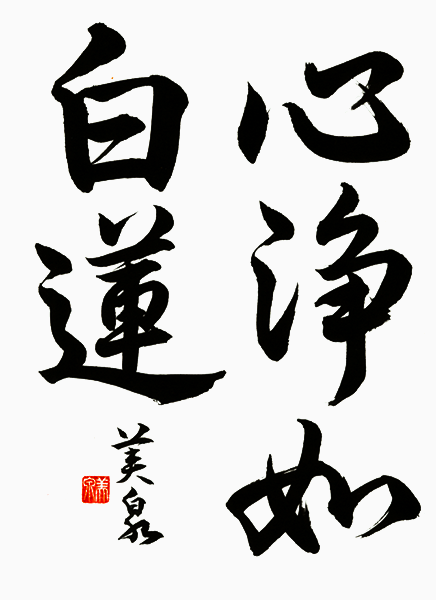 心浄如
白蓮
美泉